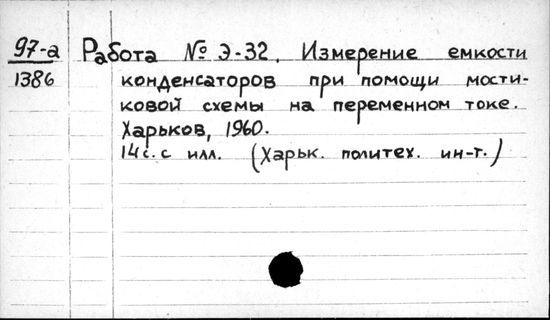 97-а Работа № Э-32. Измерение емкости
1386 конденсаторов при помощи мости-
ковой схемы на переменном токе.
Харьков, 1960.
14 с. с илл. (Харьк. политех. ин-т.)